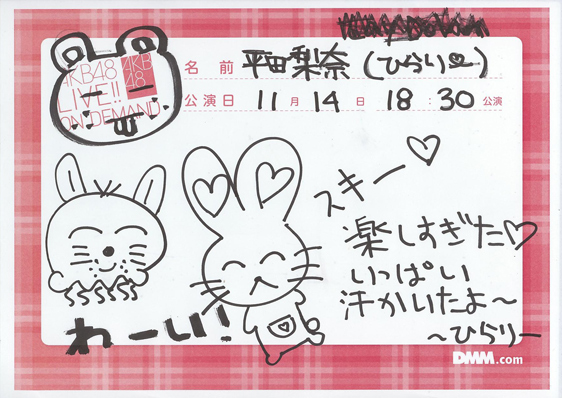 AKB48
LIVE!!
ON DEMAND
AKB
48
名 前 平田梨奈(ひらりー)
公演日 11月14日 18:30公演
スキー♡
楽しすぎた♡
いっぱい
汗かいたよ〜
〜ひらりー
わーい!
DMM.com